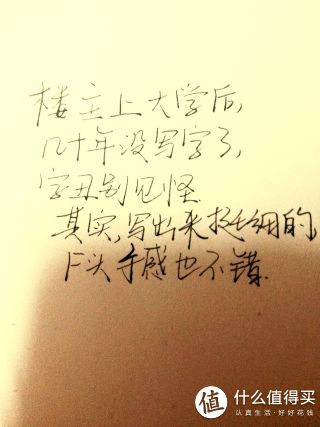 楼主上大学后,
几十年没写字了,
字丑别见怪.
其实,写出来挺细的,
F尖手感也不错.
值 什么值得买
认真生活·好好花钱